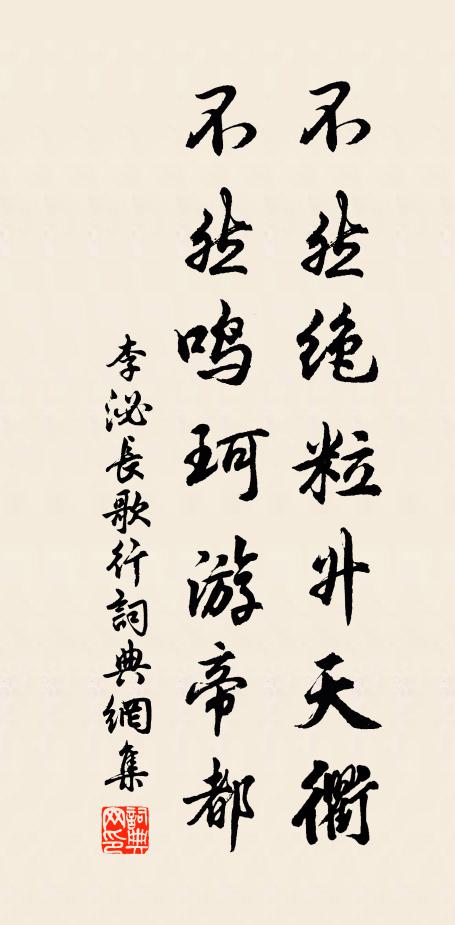 不然绝粒升天衢
不然鸣珂游帝都
李泌長歌行詞典網集
詞典
网印